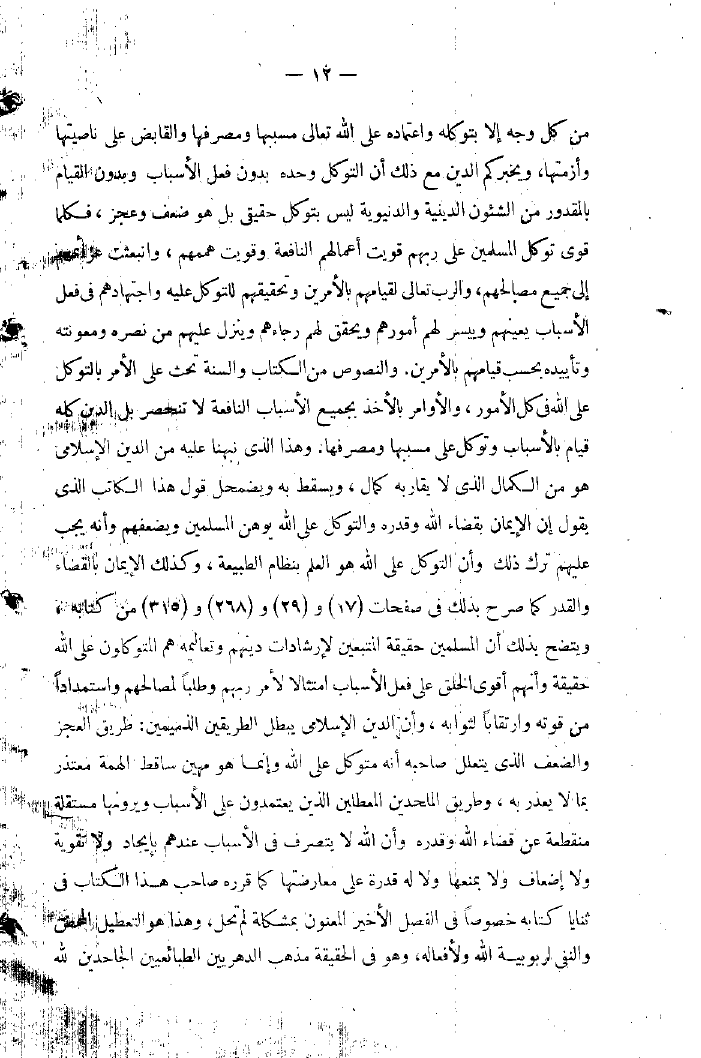 — ١٢ —
من كل وجه إلا بتوكله واعتماده على الله تعالى مسببها ومصرفها والقابض على ناصيتها
وأزمتها، ويخبركم الدين مع ذلك أن التوكل وحده بدون فعل الأسباب وبدون القيام
بالمقدور من الشئون الدينية والدنيوية ليس بتوكل حقيقى بل هو ضعف وعجز ، فكلما
قوى توكل المسلمين على ربهم قويت أعمالهم النافعة وقويت هممهم ، وانبعثت عزائمهم
إلى جميع مصالحهم، والرب تعالى لقيامهم بالأمرين وتحقيقهم للتوكل عليه واجتهادهم فى فعل
الأسباب يعينهم وييسر لهم أمورهم ويحقق لهم رجاءهم وينزل عليهم من نصره ومعونته
وتأييده بحسب قيامهم بالأمرين. والنصوص من الكتاب والسنة تحث على الأمر بالتوكل
على الله فى كل الأمور ، والأوامر بالأخذ بجميع الأسباب النافعة لا تنحصر بل الدين كله
قيام بالأسباب وتوكل على مسببها ومصرفها. وهذا الذى نبهنا عليه من الدين الإسلامى
هو من الكمال الذى لا يقاربه كمال ، ويسقط به ويضمحل قول هذا الكاتب الذى
يقول إن الإيمان بقضاء الله وقدره والتوكل على الله يوهن المسلمين ويضعفهم وأنه يجب
عليهم ترك ذلك وأن التوكل على الله هو العلم بنظام الطبيعة ، وكذلك الإيمان بالقضاء
والقدر كما صرح بذلك فى صفحات (١٧) و (٢٩) و (٢٦٨) و (٣١٥) من كتابه ،
ويتضح بذلك أن المسلمين حقيقة المتبعين لإرشادات دينهم وتعاليمه هم المتوكلون على الله
حقيقة وأنهم أقوى الخلق على فعل الأسباب امتثالا لأمر ربهم وطلباً لمصالحهم واستمداداً
من قوته وارتقاباً لثوابه ، وأن الدين الإسلامى يبطل الطريقين الذميمين: طريق العجز
والضعف الذى يتعلل صاحبه أنه متوكل على الله وإنما هو مهين ساقط الهمة معتذر
بما لا يعذر به ، وطريق الملحدين المعطلين الذين يعتمدون على الأسباب ويرونها مستقلة
منقطعة عن قضاء الله وقدره وأن الله لا يتصرف فى الأسباب عندهم بإيجاد ولا تقوية
ولا إضعاف ولا يمنعها ولا له قدرة على معارضتها كما قرره صاحب هذا الكتاب فى
ثنايا كتابه خصوصاً فى الفصل الأخير المعنون بمشكلة لم تحل، وهذا هو التعطيل المحض
والنفى لربوبية الله ولأفعاله، وهو فى الحقيقة مذهب الدهريين الطبائعيين الجاحدين لله